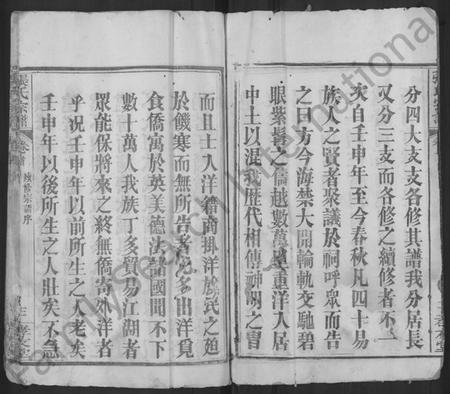 分四大支支各修其譜我分居長
又分三支而各修之續修者不一
次自壬申年至今春秋凡四十易
族人之賢者聚議於祠呼眾而告
之曰方今海禁大開輪軌交馳碧
眼紫髯之儔越數萬里重洋入居
中土以混我歷代相傳神明之冑
而且士入洋籍商掛洋旂民之廹
於饑寒而無所告者尤多出洋覓
食僑寓於英美德法諸國間不下
數十萬人我族丁多貿易江湖者
眾能保將來之終無僑寄外洋者
乎況壬申年以前所生之人老矣
壬申年以後所生之人壯矣不急
張氏宗譜
卷首
續修宗譜序
三
孝友堂
FamilySearch International